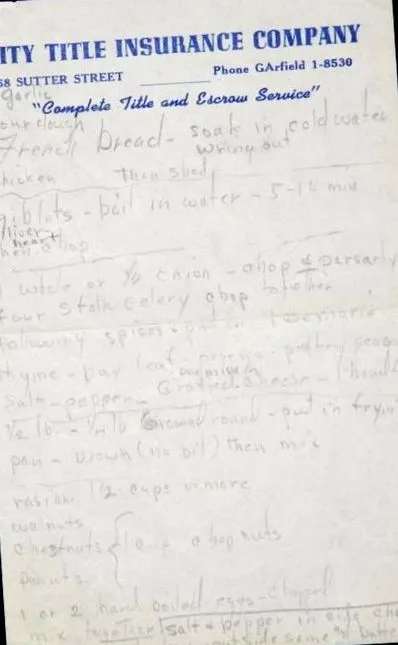 ITY TITLE INSURANCE COMPANY
58 SUTTER STREET Phone GArfield 1-8530
"Complete Title and Escrow Service"
garlic
ourdough
French bread - soak in cold water
wring out
then shed
hicken
giblets - boil in water - 5-10 min
liver
heart
then chop
whole or 1/4 onion - chop & parsely
four stalk celery chop together
following spices
thyme - bay leaf - poultry seaso
parmesian
salt - pepper - grated cheese - 1 handf
1/2 lb. - ground round - put in fryin
pan - brown (no oil) then mix
rasions 1 1/2 cups or more
walnuts
chestnuts 1 cup chop nuts
pinuts
1 or 2 hard boiled eggs - chopd
mix together salt & pepper in side
outside same